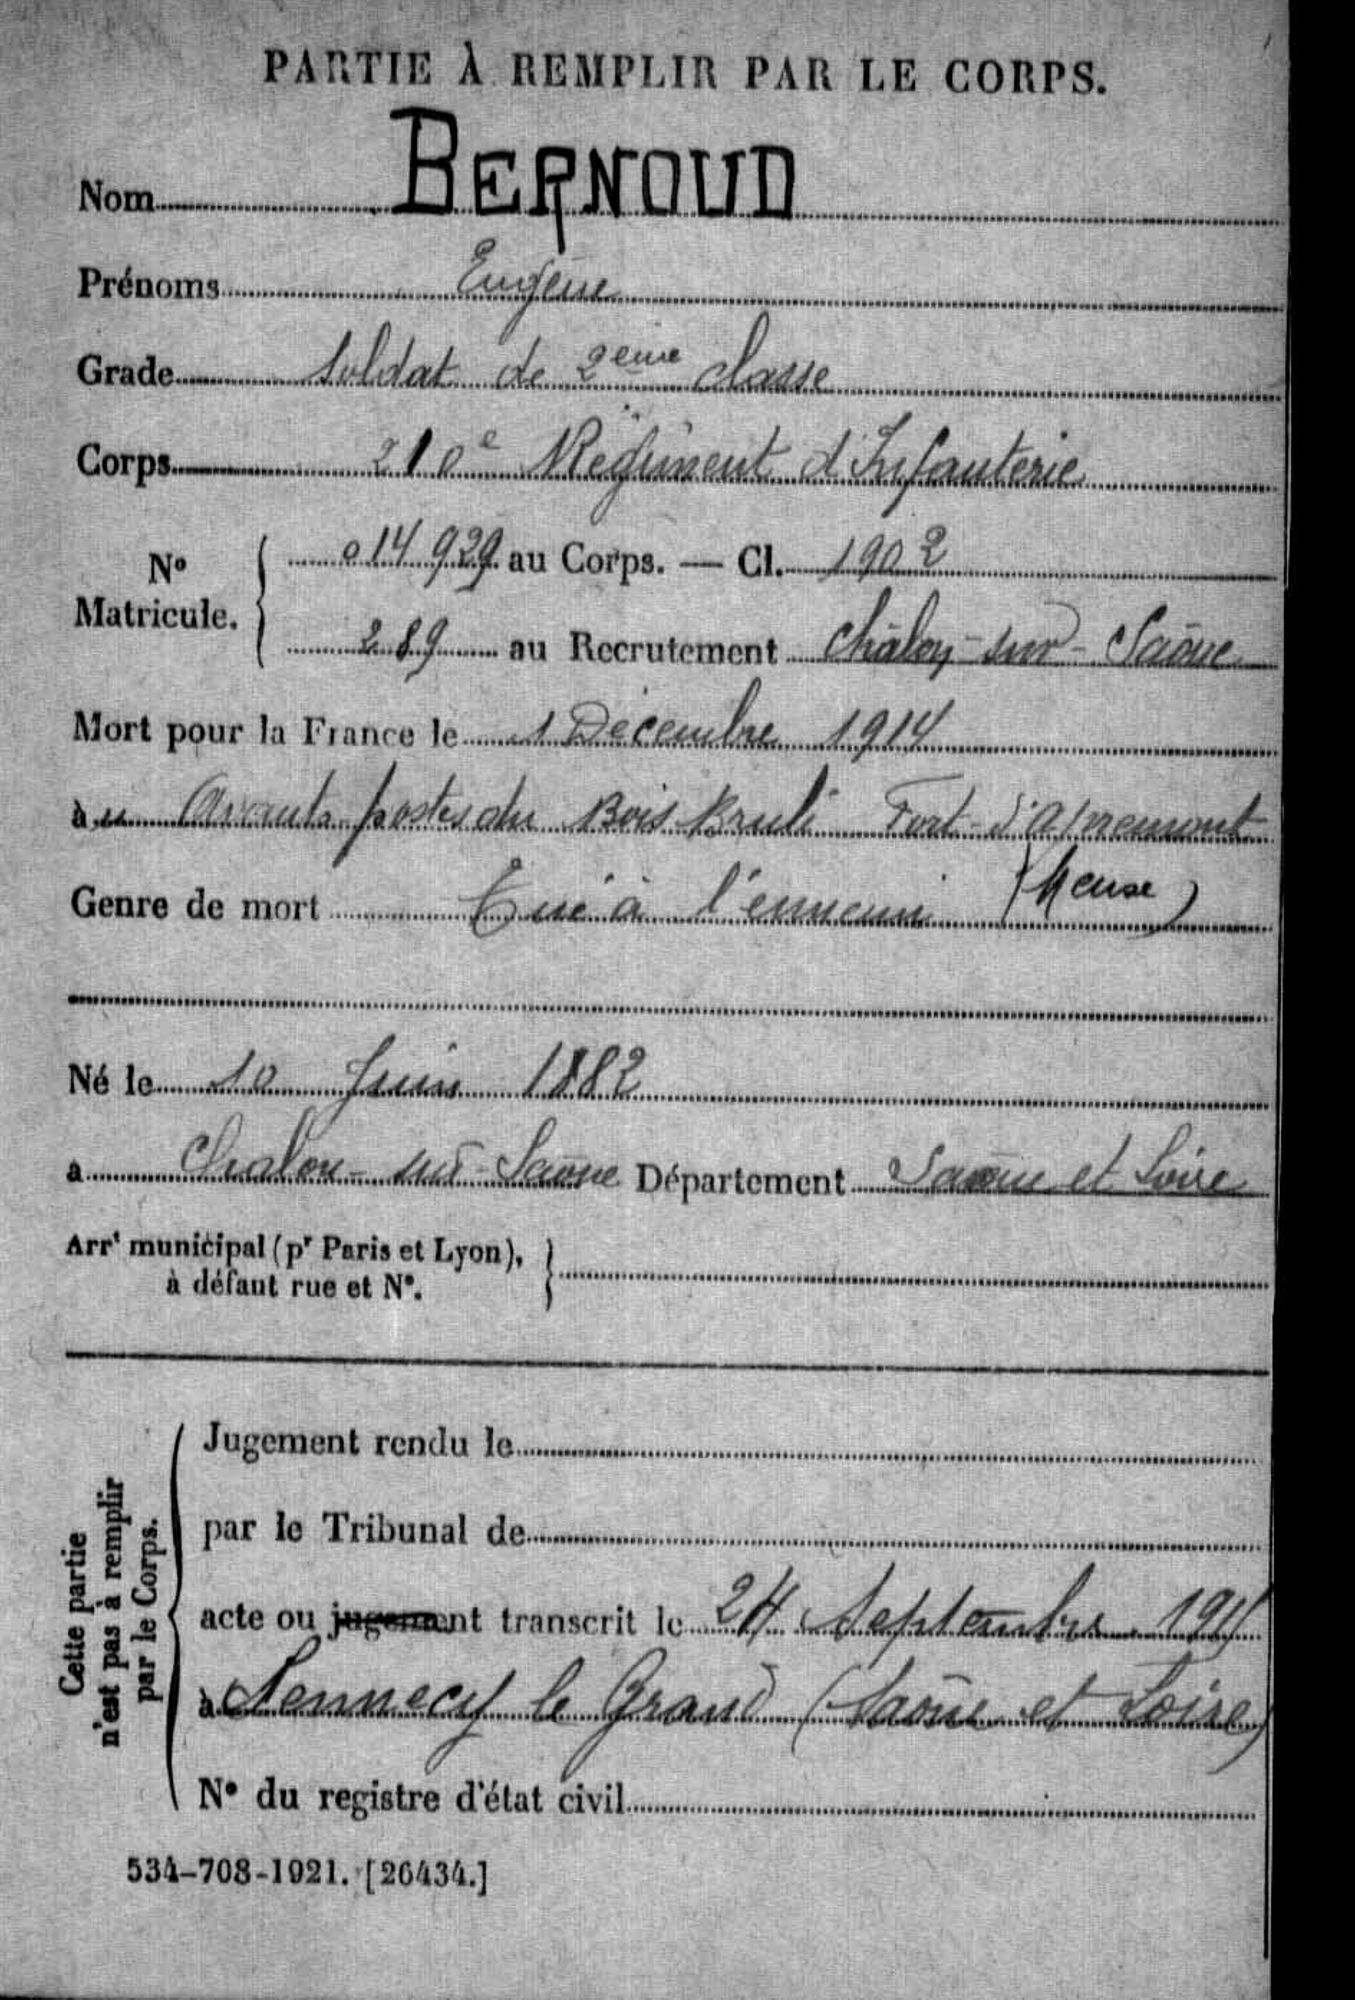 PARTIE À REMPLIR PAR LE CORPS.
Nom BERNOUD
Prénoms Eugène
Grade Soldat de 2eme classe
Corps 210e Régiment d'Infanterie
No Matricule. 014929 au Corps. — Cl. 1902
289 au Recrutement Châlon-sur-Saône
Mort pour la France le 1 Décembre 1914
au Avants-postes du Bois Brulé Fort d'Apremont
(Meuse)
Genre de mort Tué à l'ennemi
Né le 10 Juin 1882
a Chalon-sur-Saône Département Saône et Loire
Arrt municipal (pr Paris et Lyon),
à défaut rue et No.
Cette partie
n'est pas à remplir
par le Corps.
Jugement rendu le
par le Tribunal de
acte ou jugement transcrit le 24 Septembre 1915
à Sennecy le Grand (Saône et Loire)
No du registre d'état civil
534-708-1921. [26434.]